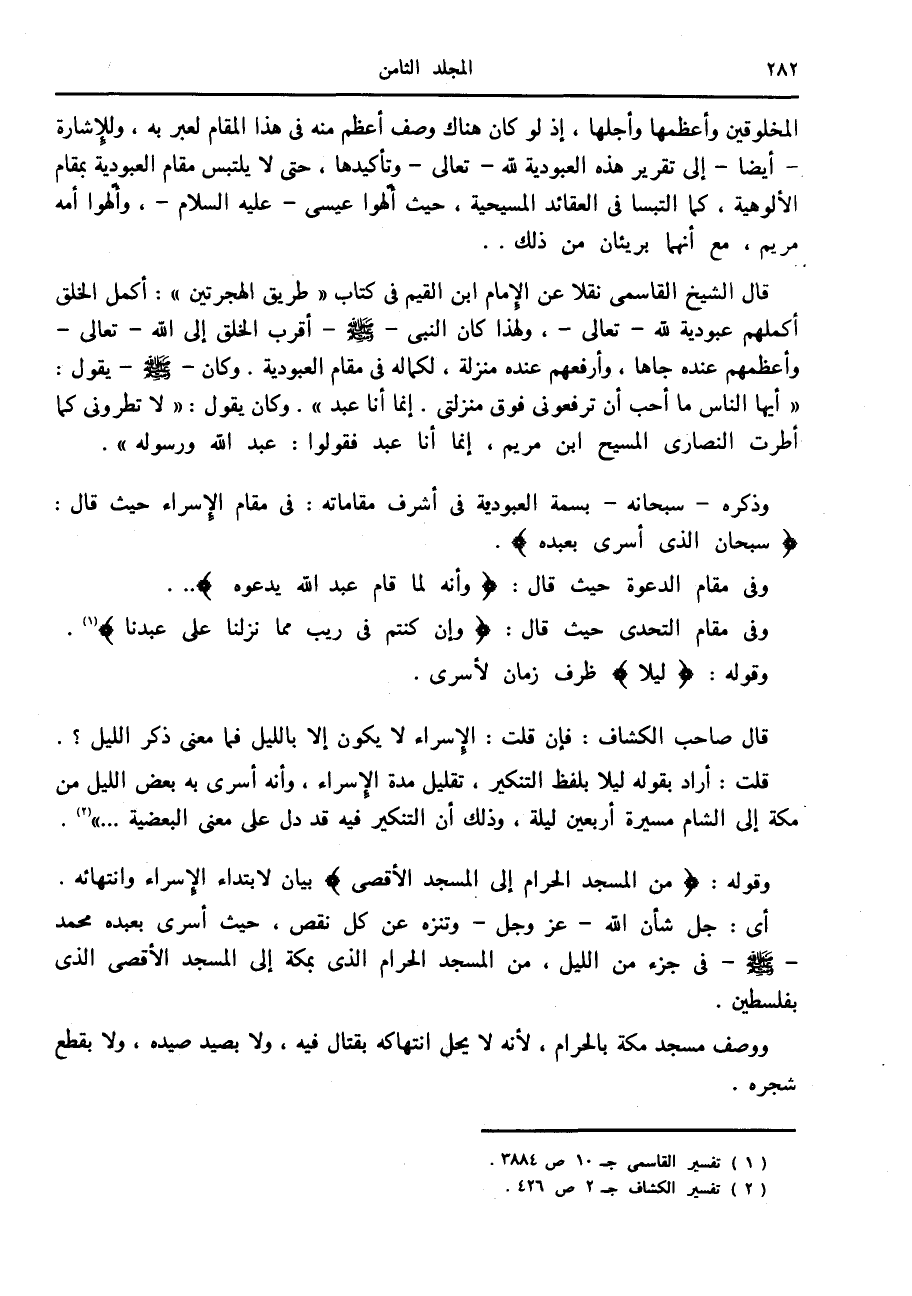 ٢٨٢ المجلد الثامن
المخلوقين وأعظمها وأجلها ، إذ لو كان هناك وصف أعظم منه فى هذا المقام لعبر به ، وللإشارة
– أيضا – إلى تقرير هذه العبودية لله – تعالى – وتأكيدها ، حتى لا يلتبس مقام العبودية بمقام
الألوهية ، كما التبسا فى العقائد المسيحية ، حيث ألَّهوا عيسى – عليه السلام – ، وألَّهوا أمه
مريم ، مع أنهما بريئان من ذلك . .
قال الشيخ القاسمى نقلا عن الإمام ابن القيم فى كتاب « طريق الهجرتين » : أكمل الخلق
أكملهم عبودية لله – تعالى – ، ولهذا كان النبى – ﷺ – أقرب الخلق إلى الله – تعالى –
وأعظمهم عنده جاها ، وأرفعهم عنده منزلة ، لكماله فى مقام العبودية . وكان – ﷺ – يقول :
« أيها الناس ما أحب أن ترفعونى فوق منزلتى . إنما أنا عبد » . وكان يقول : « لا تطرونى كما
أطرت النصارى المسيح ابن مريم ، إنما أنا عبد فقولوا : عبد الله ورسوله » .
وذكره – سبحانه – بسمة العبودية فى أشرف مقاماته : فى مقام الإسراء حيث قال :
﴿ سبحان الذى أسرى بعبده ﴾ .
وفى مقام الدعوة حيث قال : ﴿ وأنه لما قام عبد الله يدعوه ﴾.. .
وفى مقام التحدى حيث قال : ﴿ وإن كنتم فى ريب مما نزلنا على عبدنا ﴾(١) .
وقوله : ﴿ ليلا ﴾ ظرف زمان لأسرى .
قال صاحب الكشاف : فإن قلت : الإسراء لا يكون إلا بالليل فما معنى ذكر الليل ؟ .
قلت : أراد بقوله ليلا بلفظ التنكير ، تقليل مدة الإسراء ، وأنه أسرى به بعض الليل من
مكة إلى الشام مسيرة أربعين ليلة ، وذلك أن التنكير فيه قد دل على معنى البعضية ...»(٢) .
وقوله : ﴿ من المسجد الحرام إلى المسجد الأقصى ﴾ بيان لابتداء الإسراء وانتهائه .
أى : جل شأن الله – عز وجل – وتنزه عن كل نقص ، حيث أسرى بعبده محمد
– ﷺ – فى جزء من الليل ، من المسجد الحرام الذى بمكة إلى المسجد الأقصى الذى
بفلسطين .
ووصف مسجد مكة بالحرام ، لأنه لا يحل انتهاكه بقتال فيه ، ولا بصيد صيده ، ولا بقطع
شجره .
( ١ ) تفسير القاسمى جـ ١٠ ص ٣٨٨٤ .
( ٢ ) تفسير الكشاف جـ ٢ ص ٤٢٦ .